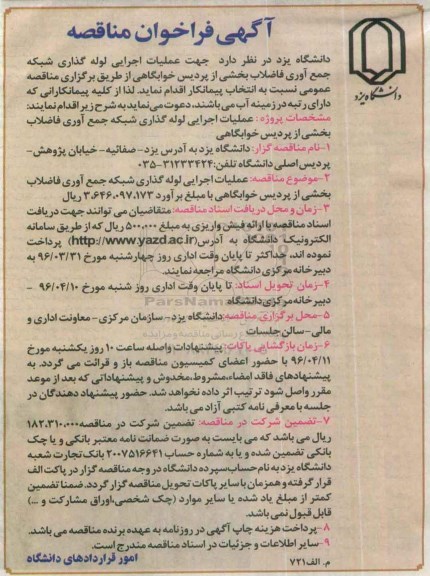 آگهی فراخوان مناقصه
دانشگاه یزد
دانشگاه یزد در نظر دارد جهت عملیات اجرایی لوله گذاری شبکه
جمع آوری فاضلاب بخشی از پردیس خوابگاهی از طریق برگزاری مناقصه
عمومی نسبت به انتخاب پیمانکار اقدام نماید. لذا از کلیه پیمانکارانی که
دارای رتبه در زمینه آب می باشند، دعوت می نماید به شرح زیر اقدام نمایند:
مشخصات پروژه: عملیات اجرایی لوله گذاری شبکه جمع آوری فاضلاب
بخشی از پردیس خوابگاهی
۱-نام مناقصه گزار: دانشگاه یزد به آدرس یزد- صفائیه- خیابان پژوهش-
پردیس اصلی دانشگاه تلفن: ۳۱۲۳۳۴۲۴-۰۳۵
۲-موضوع مناقصه: عملیات اجرایی لوله گذاری شبکه جمع آوری فاضلاب
بخشی از پردیس خوابگاهی با مبلغ برآورد ۳.۶۴۶.۰۹۷.۱۷۳ ریال
۳-زمان و محل دریافت اسناد مناقصه: متقاضیان می توانند جهت دریافت
اسناد مناقصه با ارائه فیش واریزی به مبلغ ۵۰۰.۰۰۰ ریال که از طریق سامانه
الکترونیک دانشگاه به آدرس (http://www.yazd.ac.ir) پرداخت
نموده اند، حداکثر تا پایان وقت اداری روز چهارشنبه مورخ ۹۶/۰۳/۳۱ به
دبیرخانه مرکزی دانشگاه مراجعه نمایند.
۴-زمان تحویل اسناد: تا پایان وقت اداری روز شنبه مورخ ۹۶/۰۴/۱۰ -
دبیرخانه مرکزی دانشگاه
۵-محل برگزاری مناقصه: دانشگاه یزد- سازمان مرکزی- معاونت اداری و
مالی- سالن جلسات
۶-زمان بازگشایی پاکات: پیشنهادات واصله ساعت ۱۰ روز یکشنبه مورخ
۹۶/۰۴/۱۱ با حضور اعضای کمیسیون مناقصه باز و قرائت می گردد. به
پیشنهادهای فاقد امضاء، مشروط، مخدوش و پیشنهاداتی که بعد از موعد
مقرر واصل شود ترتیب اثر داده نخواهد شد. حضور پیشنهاد دهندگان در
جلسه با معرفی نامه کتبی آزاد می باشد.
۷-تضمین شرکت در مناقصه: تضمین شرکت در مناقصه ۱۸۲.۳۱۰.۰۰۰
ریال می باشد که می بایست به صورت ضمانت نامه معتبر بانکی و یا چک
بانکی تضمین شده و یا به شماره حساب ۲۰۰۷۵۱۶۶۴۱ بانک تجارت شعبه
دانشگاه یزد به نام حساب سپرده دانشگاه در وجه مناقصه گزار در پاکت الف
قرار گرفته و همزمان با سایر پاکات تحویل مناقصه گزار گردد. ضمنا تضمین
کمتر از مبلغ یاد شده یا سایر موارد (چک شخصی، اوراق مشارکت و ...)
قابل قبول نمی باشد.
۸-پرداخت هزینه چاپ آگهی در روزنامه به عهده برنده مناقصه می باشد.
۹-سایر اطلاعات و جزئیات در اسناد مناقصه مندرج است.
امور قراردادهای دانشگاه
م. الف ۷۲۱